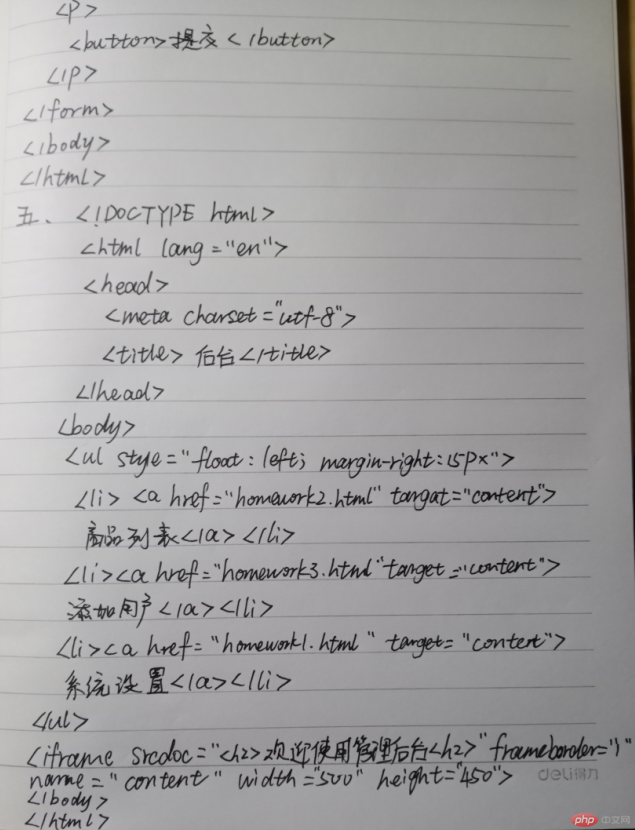 <p>
<button>提交</button>
</p>
</form>
</body>
</html>
五、<!DOCTYPE html>
<html lang="en">
<head>
<meta charset="utf-8">
<title>后台</title>
</head>
<body>
<ul style="float:left; margin-right:15px">
<li><a href="homework2.html" targat="content">
商品列表</a></li>
<li><a href="homework3.html" target="content">
添加用户</a></li>
<li><a href="homework1.html" target="content">
系统设置</a></li>
</ul>
<iframe srcdoc="<h2>欢迎使用管理后台<h2>" frameborder="1"
name="content" width="500" height="450">
deli得力
</body>
</html>
php 中文网